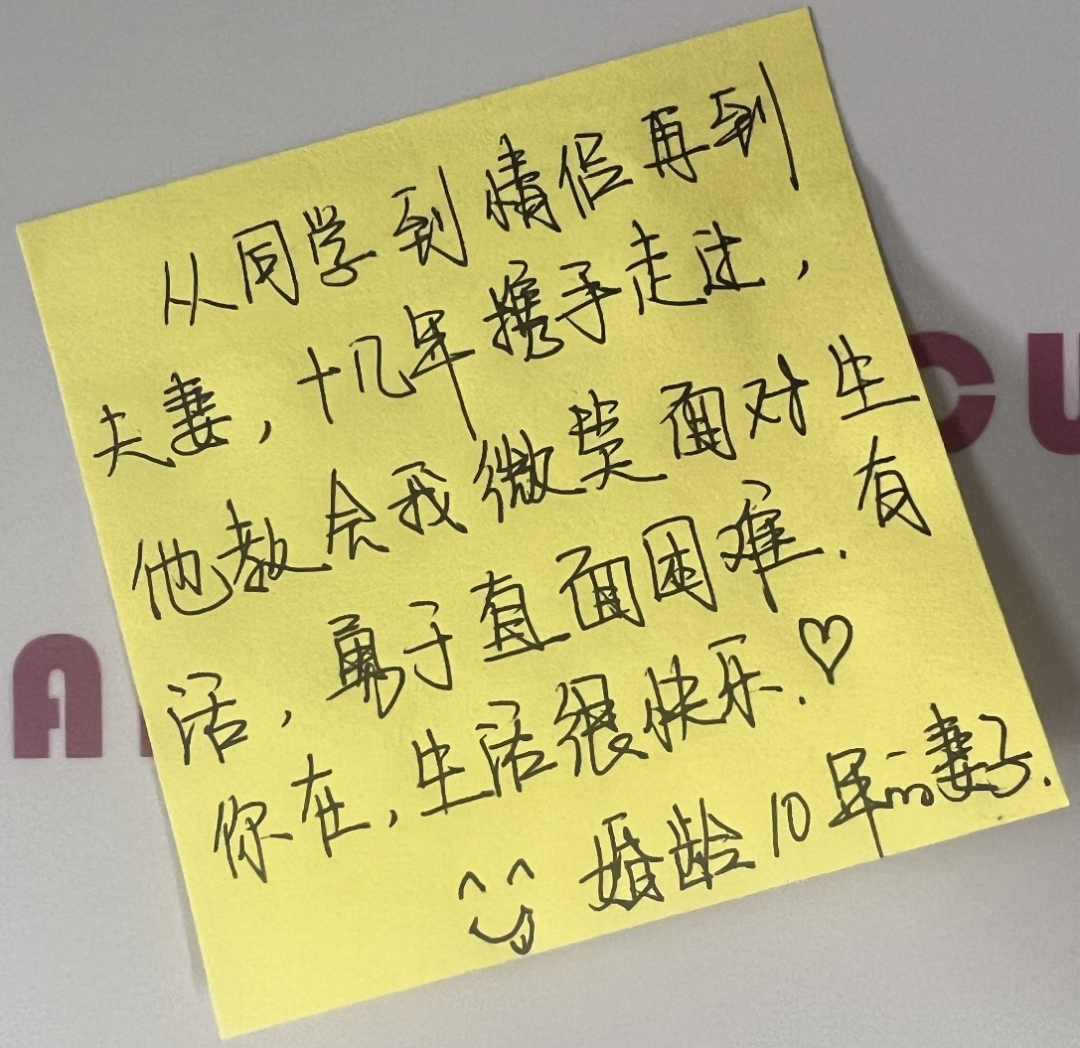 从同学到情侣再到
夫妻，十几年携手走过，
他教会我微笑面对生
活，勇于直面困难.有
你在，生活很快乐.♡
婚龄10年的妻子.
A
CU